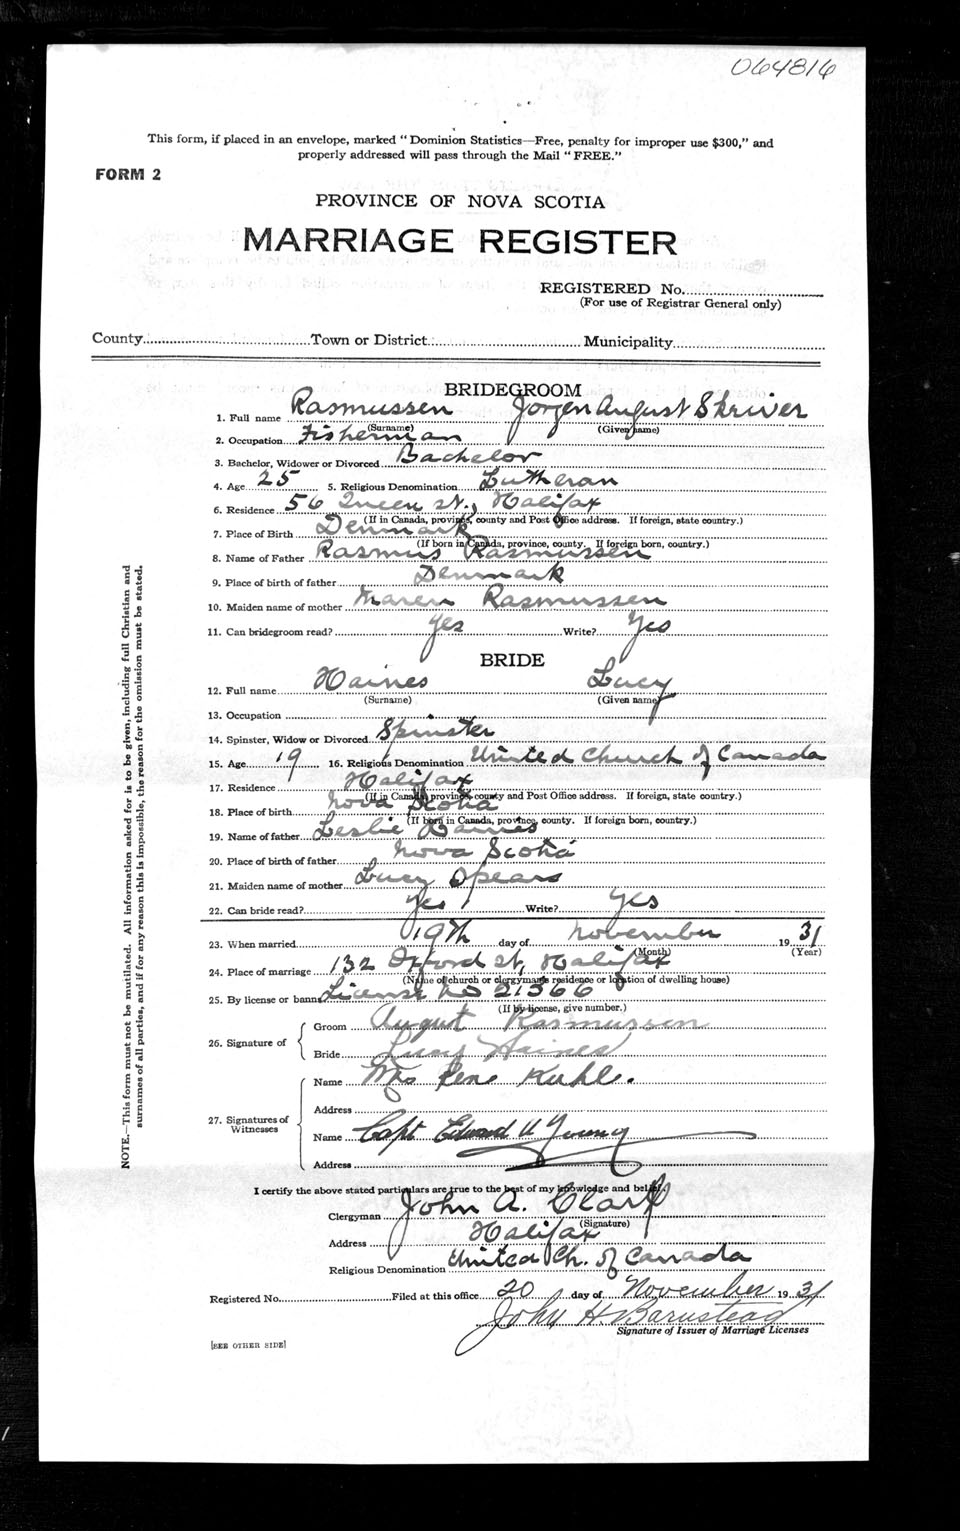 064816
This form, if placed in an envelope, marked "Dominion Statistics—Free, penalty for improper use $300," and
properly addressed will pass through the Mail "FREE."
FORM 2
PROVINCE OF NOVA SCOTIA
MARRIAGE REGISTER
REGISTERED No.
(For use of Registrar General only)
County Town or District Municipality
NOTE.—This form must not be mutilated. All information asked for is to be given, including full Christian and
surnames of all parties, and if for any reason this is impossible, the reason for the omission must be stated.
BRIDEGROOM
1. Full name Rasmussen Jorgen August Skriver
(Surname) (Given name)
2. Occupation Fisherman
3. Bachelor, Widower or Divorced Bachelor
4. Age 25 5. Religious Denomination Lutheran
6. Residence 56 Queen St., Halifax
(If in Canada, province, county and Post Office address. If foreign, state country.)
7. Place of Birth Denmark
(If born in Canada, province, county. If foreign born, country.)
8. Name of Father Rasmus Rasmussen
9. Place of birth of father Denmark
10. Maiden name of mother Maren Rasmussen
11. Can bridegroom read? Yes Write? Yes
BRIDE
12. Full name Haines Lucy
(Surname) (Given name)
13. Occupation
14. Spinster, Widow or Divorced Spinster
15. Age 19 16. Religious Denomination United Church of Canada
17. Residence Halifax
(If in Canada, province, county and Post Office address. If foreign, state country.)
18. Place of birth Nova Scotia
(If born in Canada, province, county. If foreign born, country.)
19. Name of father Leslie Haines
20. Place of birth of father Nova Scotia
21. Maiden name of mother Lucy Spears
22. Can bride read? Yes Write? Yes
23. When married 19th day of November 1931
(Month) (Year)
24. Place of marriage 132 Oxford St, Halifax
(Name of church or clergyman's residence or location of dwelling house)
25. By license or banns License No 21366
(If by license, give number.)
26. Signature of
Groom August Rasmussen
Bride Lucy Haines
27. Signatures of Witnesses
Name Mrs Rene Kuhl.
Address
Name Capt Edward U Young
Address
I certify the above stated particulars are true to the best of my knowledge and belief.
Clergyman John A. Clark
(Signature)
Address Halifax
Religious Denomination United Ch. of Canada
Registered No. Filed at this office 20 day of November 1931
John H Barnstead
Signature of Issuer of Marriage Licenses
[SEE OTHER SIDE]